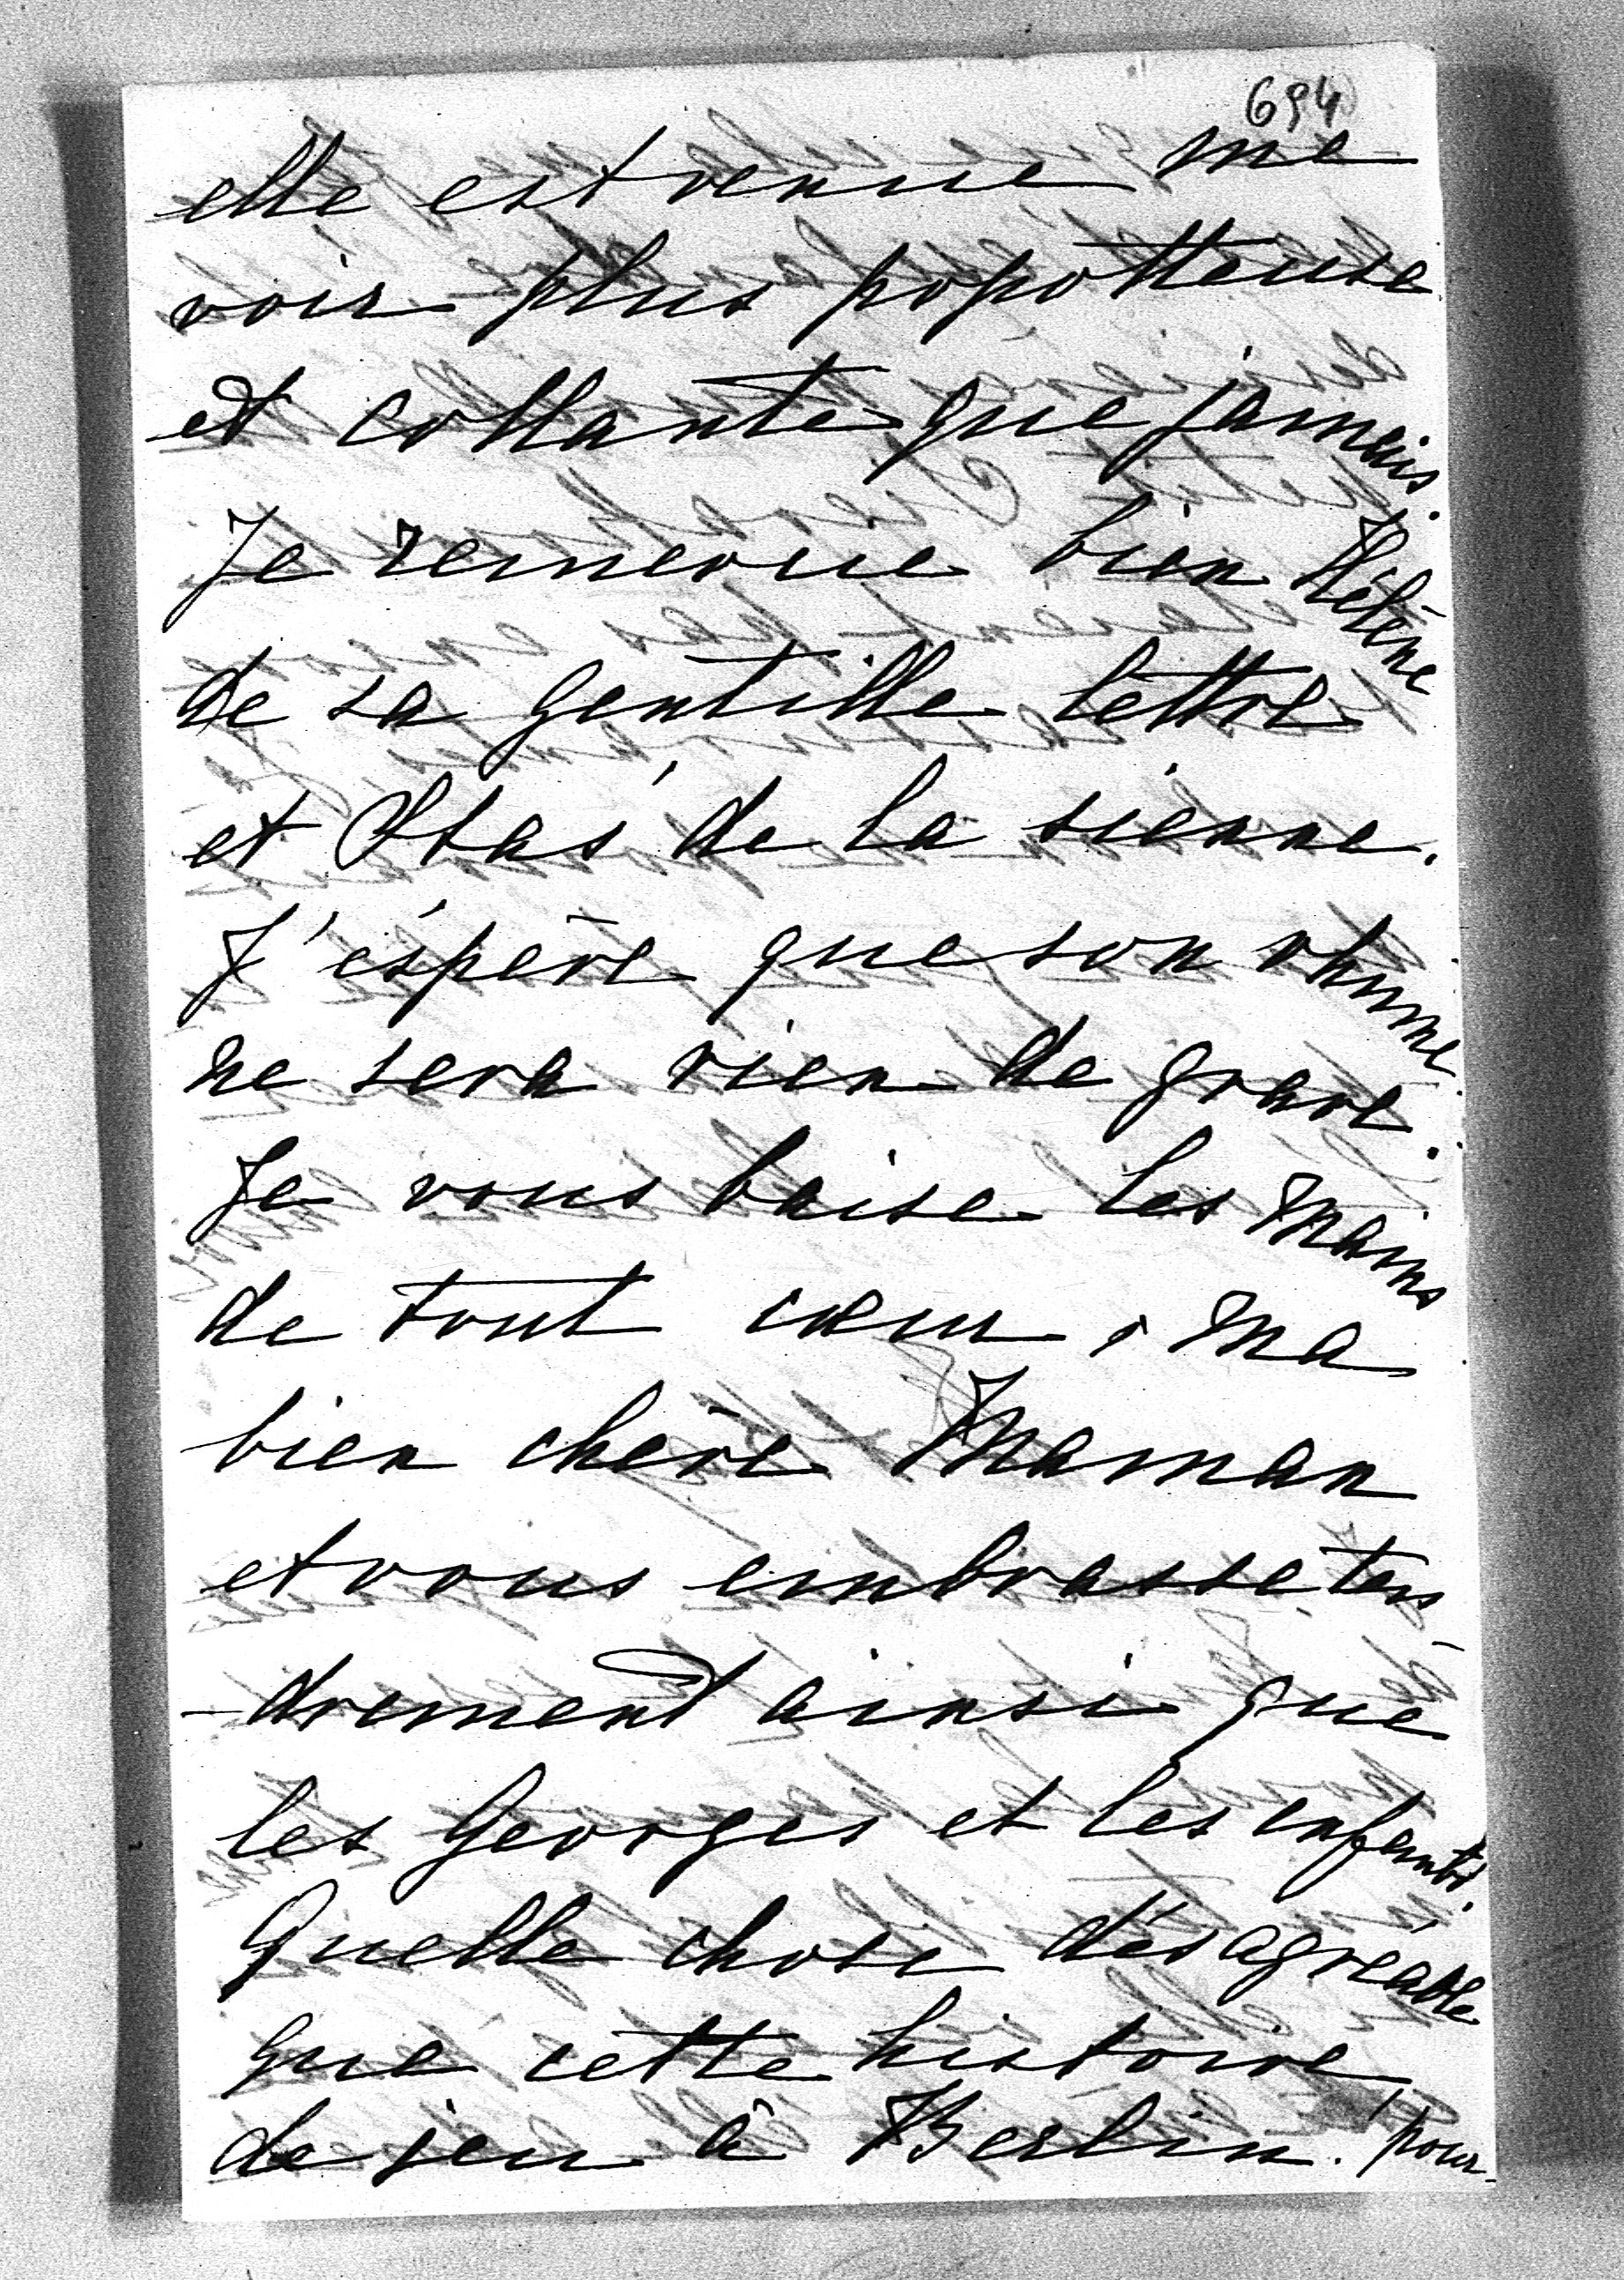 694
elle est venue me
voir plus popotteuse
et collante que jamais.
Je remercie bien Hélène
de sa gentille lettre
et Stas' de la sienne.
J'éspère que son rhume
ne sera rien de grave.
Je vous baise les mains
de tout cœur, ma
bien chère Maman
et vous embrasse ten
-drement ainsi que
les Georges et les enfants.
Quelle chose désagréable
que cette histoire
de jeu à Berlin! pour-